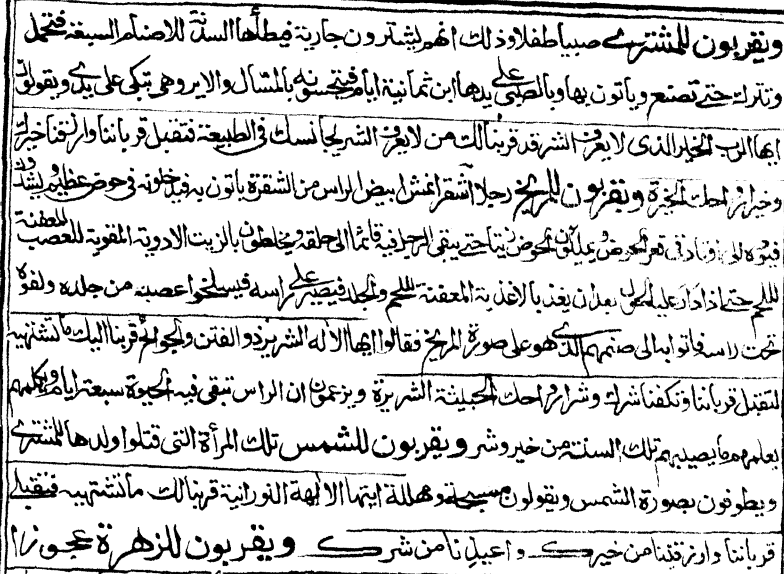 ويقربون للمشتري صبيا طفلا وذلك انهم يشترون جارية فيطأها السدنة للاصنام السبعة فتحمل
وتترك حتى تضع وياتون بها وبالصبي على يدها ابن ثمانية ايام فينخسونه بالمسال والابر وهي تبكي على يدي ويقولون
ايها الرب الخير الذي لا يعرف الشر قد قربنا لك من لا يعرف الشر يجانسك في الطبيعة فتقبل قرباننا وارزقنا خيرك
وخير ارواحك الخيرة ويقربون للمريخ رجلا اشقر انمش ابيض الراس من الشقرة ياتون به فيدخلونه في حوض عظيم ويشدون
قيوده الى اوتاد في قعر الحوض ويملئون الحوض زيتا حتى يبقى الرجل فيه قائما الى حلقه ويخلطون بالزيت الادوية المقوية للعصب المعفنة
للحم حتى اذا دار عليه الحول بعد ان يغذى بالاغذية المعفنة للحم والجلد فيقبض على راسه فيسلخوا عصبه من جلده ولفوه
تحت راسه واتوا به الى صنمهم الذي هو على صورة المريخ فقالوا ايها الاله الشرير ذو الفتن والجوائح قربنا اليك ما تشتهيه
لتقبل قرباننا وتكفنا شرك وشر ارواحك الخبيثة الشريرة ويزعمون ان الراس تبقى فيه الحيوة سبعة ايام ويكلمهم
بعلمهم ما يصيبهم تلك السنة من خير وشر ويقربون للشمس تلك المرأة التي قتلوا ولدها للمشتري
ويطوفون بصورة الشمس ويقولون مسبحة ومهللة ايتها الالهة النورانية قربنا لك ما تشتهيه فتقبلي
قرباننا وارزقينا من خيرك واعيذنا من شرك ويقربون للزهرة عجوزا